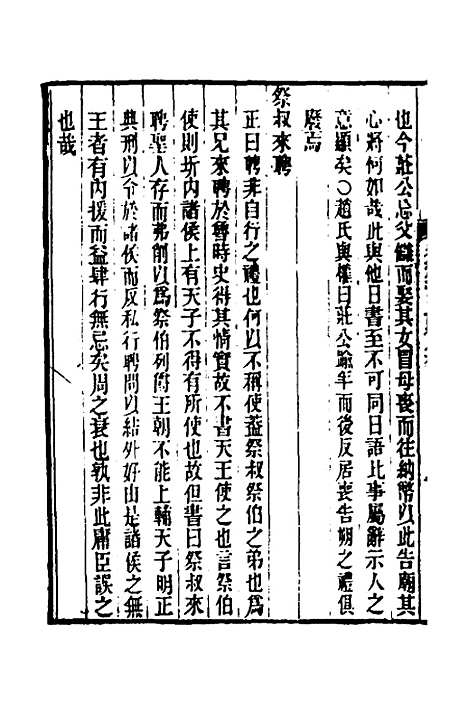 也今莊公忘父讎而娶其女冒母喪而往納幣以此告廟其
心將何如哉此與他日書至不可同日語比事屬辭示人之
意顯矣○趙氏與權曰莊公踰年而後反居喪告朔之禮俱
廢焉
祭叔來聘
正曰聘非自行之禮也何以不稱使蓋祭叔祭伯之弟也爲
其兄來聘於魯時史得其情實故不書天王使之也言祭伯
使則圻内諸侯上有天子不得有所使也故但書曰祭叔來
聘聖人存而弗削以爲祭伯列爵王朝不能上輔天子明正
典刑以令於諸侯而反私行聘問以結外好由是諸侯之無
王者有内援而益肆行無忌矣周之衰也孰非此庸臣誤之
也哉